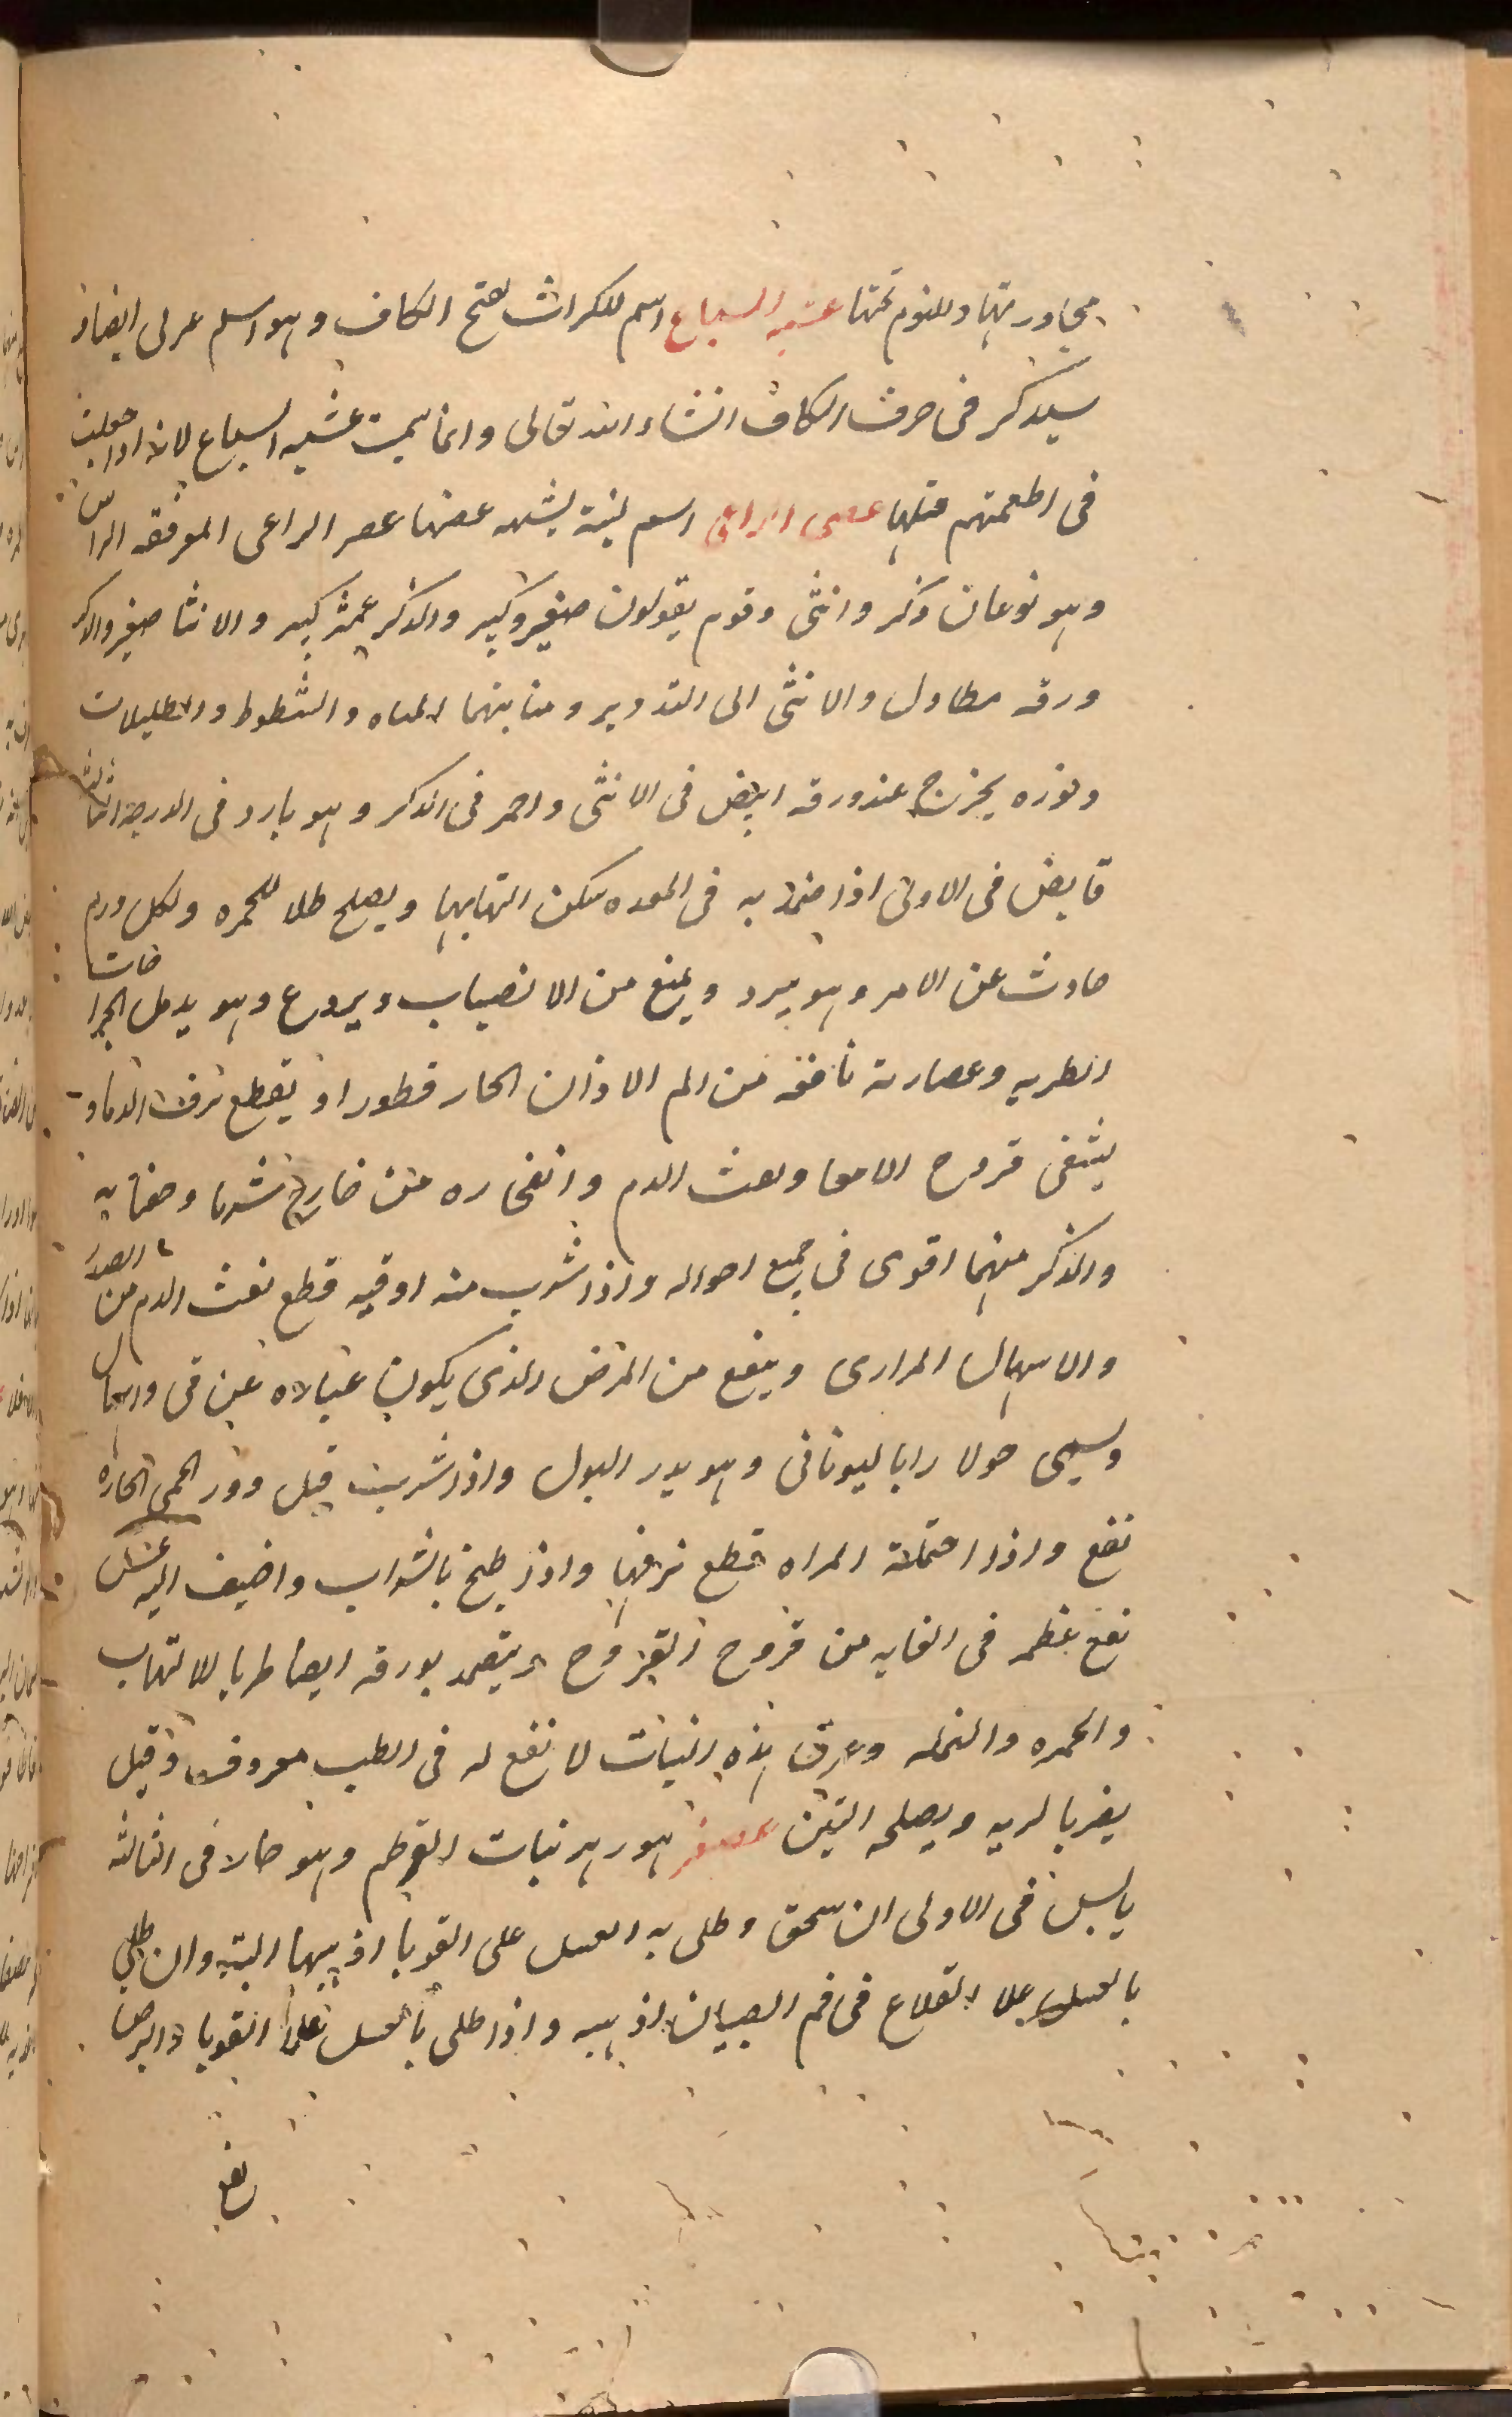 مجاورتها وللنوم تحتها عشبه السباع اسم للكراث بفتح الكاف وهو اسم عربى ايضا و
سيذكر فى حرف الكاف انشاء الله تعالى وانما سميت عشبه السباع لانه اذا جعلت
فى اطعمتهم قتلها عصى الراعى اسم لنبتة يشبه غصنها عصر الراعى المعرفقه الراس
وهو نوعان ذكر وانثى وقوم يقولون صغير وكبير والذكر عمثر كبير والانثا صغير والذكر
ورقه مطاول والانثى الى التدوير ومنابتهما المياه والشطوط والظليلات
ونوره يخرج عند ورقه ابيض فى الانثى واحمر فى الذكر وهو بارد فى الدرجة الثالثه
قابض فى الاولى اذا ضمد به فى المعده سكن التهابها ويصلح طلا للحمره ولكل ورم
حادث عن الامر وهو يبرد ويمنع من الانصباب ويردع وهو يدمل الجراحات
الطريه وعصارته نافعه من الم الاذان الحار قطورا ويقطع نزف الدما و
يشفى قروح الامعا ونفث الدم وانفجاره من خارج شربا وحقنا به
والذكر منهما اقوى فى جميع احواله واذا شرب منه اوقيه قطع نفث الدم من الصدر
والاسهال المرارى وينفع من المرض الذى يكون غيالاه عن قى واسهال
ويسمى حولا رابا ليونانى وهو يدر البول واذا شربت قبل دور الحمى الحاره
نفع واذا احتملته المراه قطع نزفها واذا طبخ بالشراب واضيف اليه عسل
نفع عظم فى الغايه من قروح القروح ويتضمد بورقه ايضا طريا للالتهاب
والحمره والنمله وعرق هذه النبات لا نفع له فى الطب معروف وقيل
يضر بالريه ويصلحه التين عصفر هو زهر نبات القرطم وهو حار فى الثالثه
يابس فى الاولى ان سحق وطلى به العسل على القوبا اذهبها البته وان طلى
بالعسل علا القلاع فى فم الصبيان اذهبه واذا طلى بالعسل على القوبا والبرص
نفع